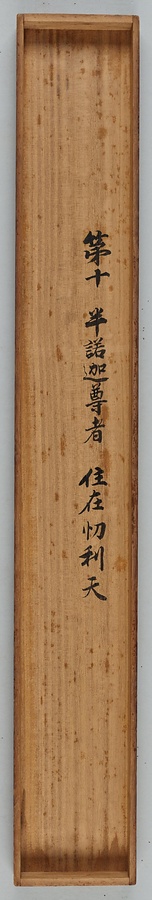 第十 半諾迦尊者 住在忉利天